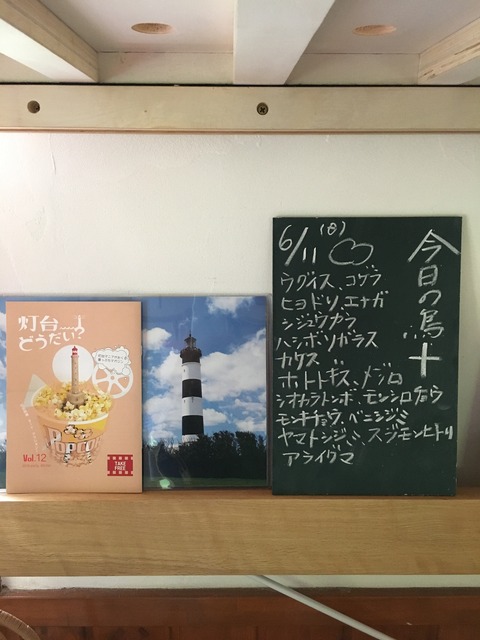 灯台
どうだい?
POPCORN
Vol.12
TAKE
FREE
今日の鳥+
6/11(日)
ウグイス、コゲラ
ヒヨドリ、エナガ
シジュウカラ
ハシボソガラス
カケス
ホトトギス、メジロ
シオカラトンボ、モンシロチョウ
モンキチョウ、ベニシジミ
ヤマトシジミ、スジモンヒトリ
アライグマ